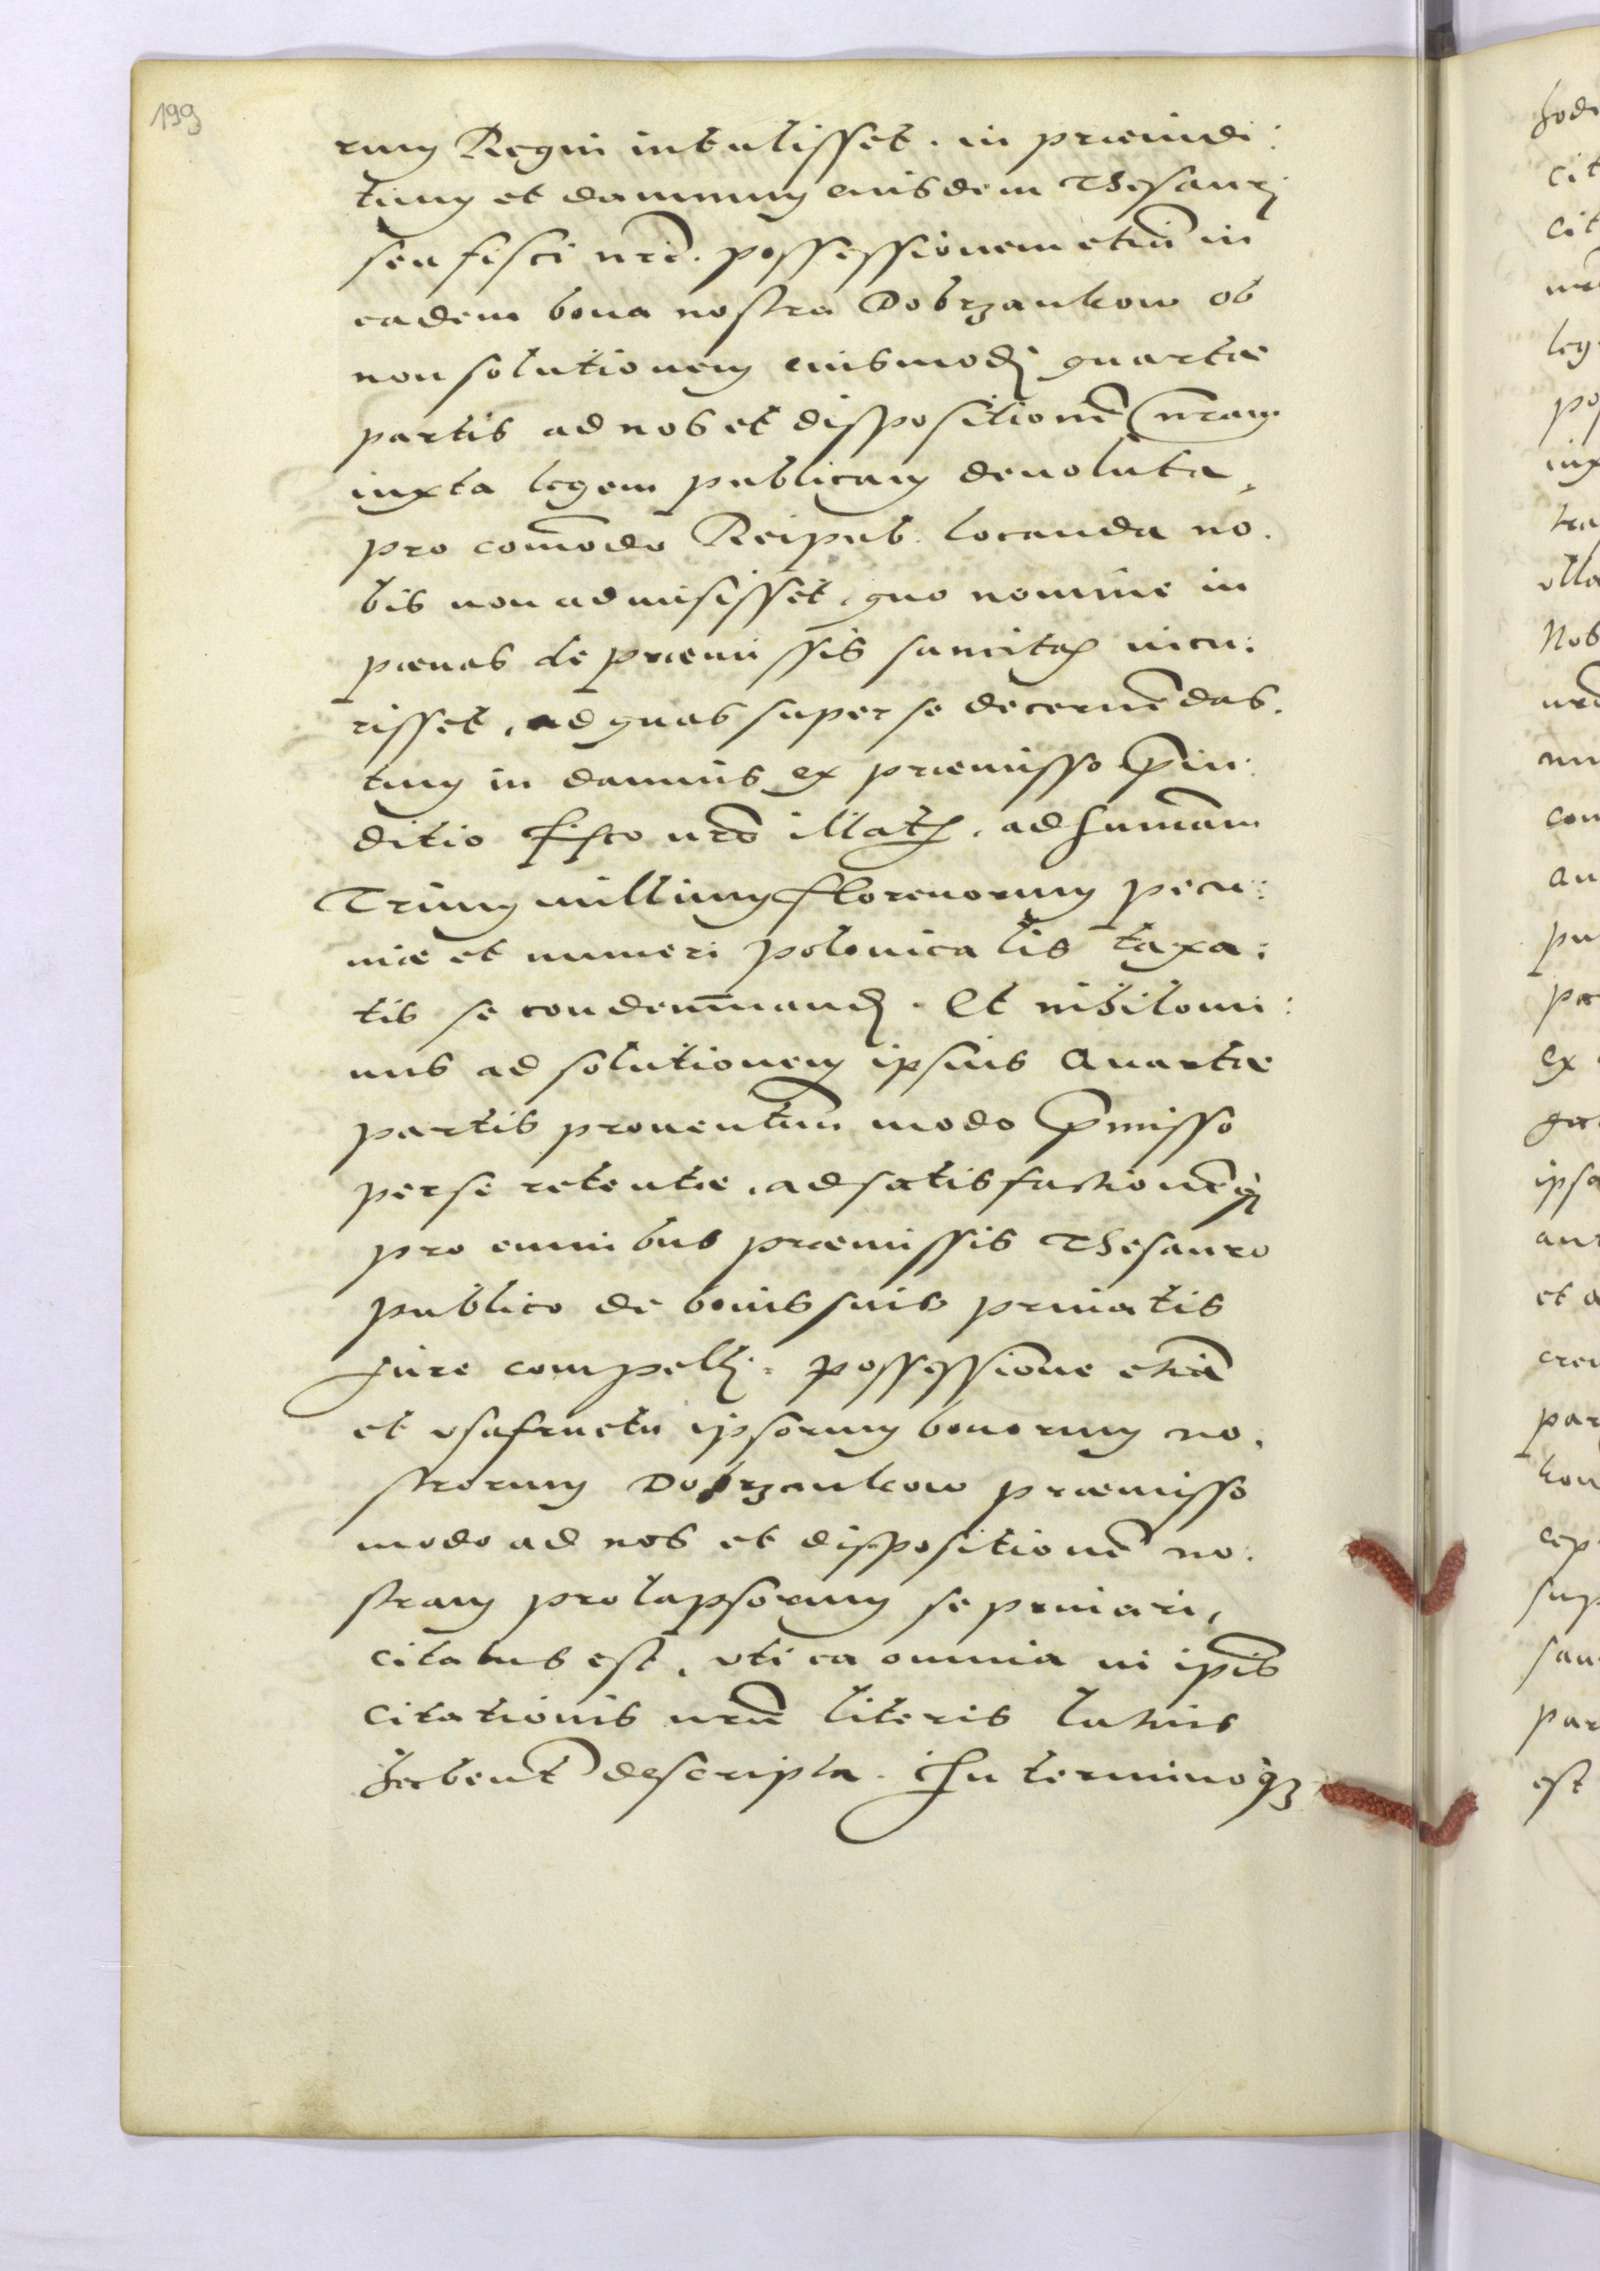 199
rum Regni intulisset. in praeiudi:
tium et damnum eiusdem Thesauri
seu fisci nri. possessionem etiā in
eadem bona nostra Dobrzankow ob
non solutionem eiusmodi quartae
partis ad nos et dispositionē nram
iuxta legem publicam deuoluta,
pro com̄odo Reipub. locanda no.
bis non admisisset, quo nomine in
paenas de praemissis sancitas incu:
risset, ad quas super se decernēdas.
tum in damnis ex praemisso prin:
ditio fisco nro illatis. ad sum̄am
Trium millium florenorum pecu:
niae et numeri polonicalis taxa:
tis se condemnandi. Et nihilomi:
nus ad solutionem ipsius Quartae
partis prouentuum modo pmisso
per se retentae, ad satisfactionēq;
pro omnibus praemissis Thesauro
publico de bonis suis priuatis
Jure compelli. possessione etiā
et vsufructu ipsorum bonorum no.
strorum Dobrzankow praemisso
modo ad nos et dispositionē no.
stram prolapsorum se priuari,
citatus est, vti ea omnia in ipsis
citationis nrae literis latius
habent descripta. In terminoq3
cit
cit
leg
po
iux
Nos
con
au
pu
ex
ipsa
et a
par
cep
sup
par
est